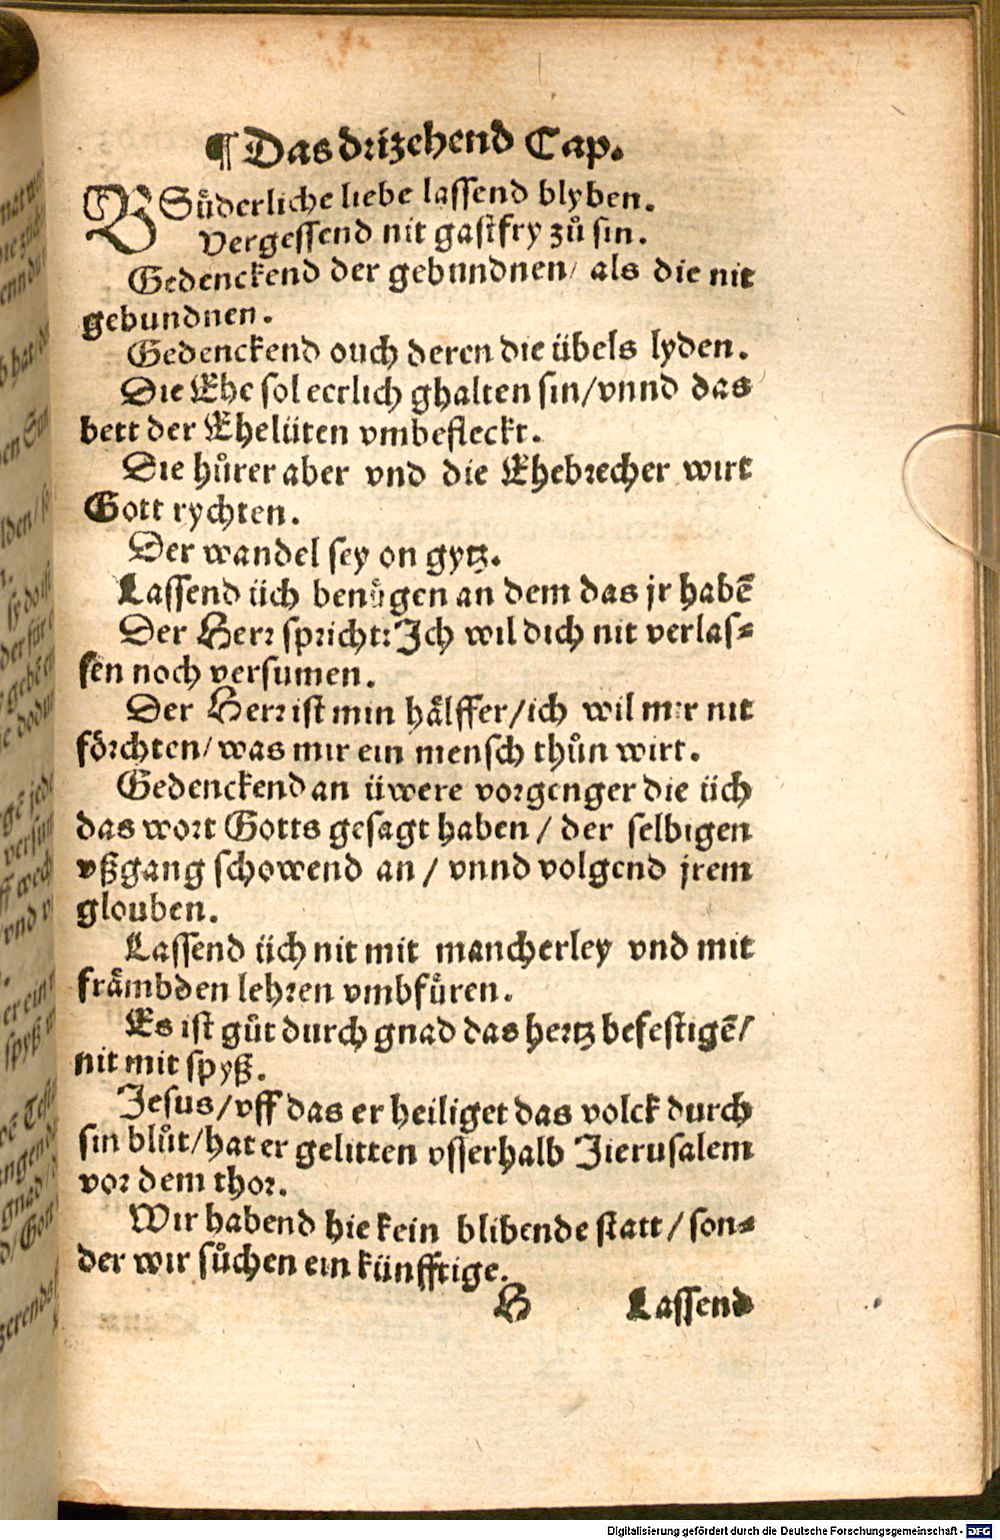 ¶ Das drizehend Cap.
BSůderliche liebe lassend blyben.
Vergessend nit gastfry zů sin.
Gedenckend der gebundnen/ als die nit
gebundnen.
Gedenckend ouch deren die übels lyden.
Die Ehe sol eerlich ghalten sin/vnnd das
bett der Ehelüten vmbefleckt.
Die hůrer aber vnd die Ehebrecher wirt
Gott rychten.
Der wandel sey on gytz.
Lassend üch benůgen an dem das jr habē
Der Herr spricht: Ich wil dich nit verlas-
sen noch versumen.
Der Herr ist min hålffer/ich wil mir nit
förchten/was mir ein mensch thůn wirt.
Gedenckend an üwere vorgenger die üch
das wort Gotts gesagt haben / der selbigen
vßgang schowend an / vnnd volgend jrem
glouben.
Lassend üch nit mit mancherley vnd mit
fråmbden lehren vmbfůren.
Es ist gůt durch gnad das hertz befestigē/
nit mit spyß.
Jesus/vff das er heiliget das volck durch
sin blůt/hat er gelitten vsserhalb Jierusalem
vor dem thor.
Wir habend hie kein blibende statt / son-
der wir sůchen ein künfftige.
H Lassend
Digitalisierung gefördert durch die Deutsche Forschungsgemeinschaft - DFG